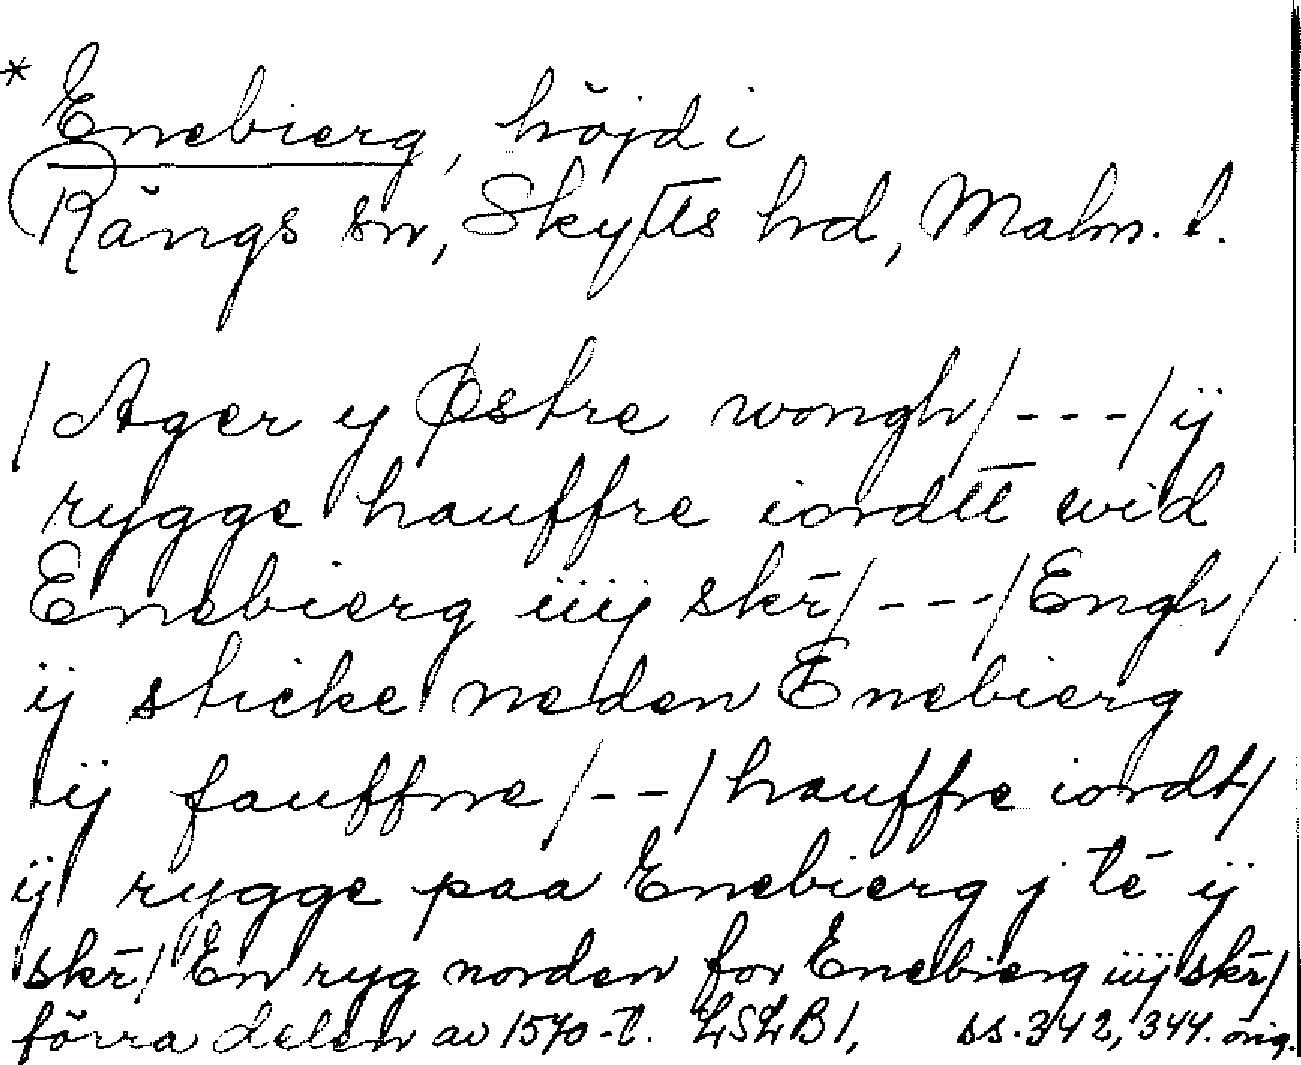 * Enebierg, höjd i
Rängs sn, Skytts hd, Malm. l.
/Ager y Østre wongh/ - - - / ij
rygge hauffre iordtt wid
Enebierg iiij skr̄/ - - - / Engh/
ij sticke neden Enebierg
ij fauffne / - - / hauffre iordt/
ij rygge paa Enebierg j té ij
skr̄/ En ryg norden for Enebierg iiij skr̄/
förra delen av 1570-t. LSLB1, ss. 342, 344. orig.